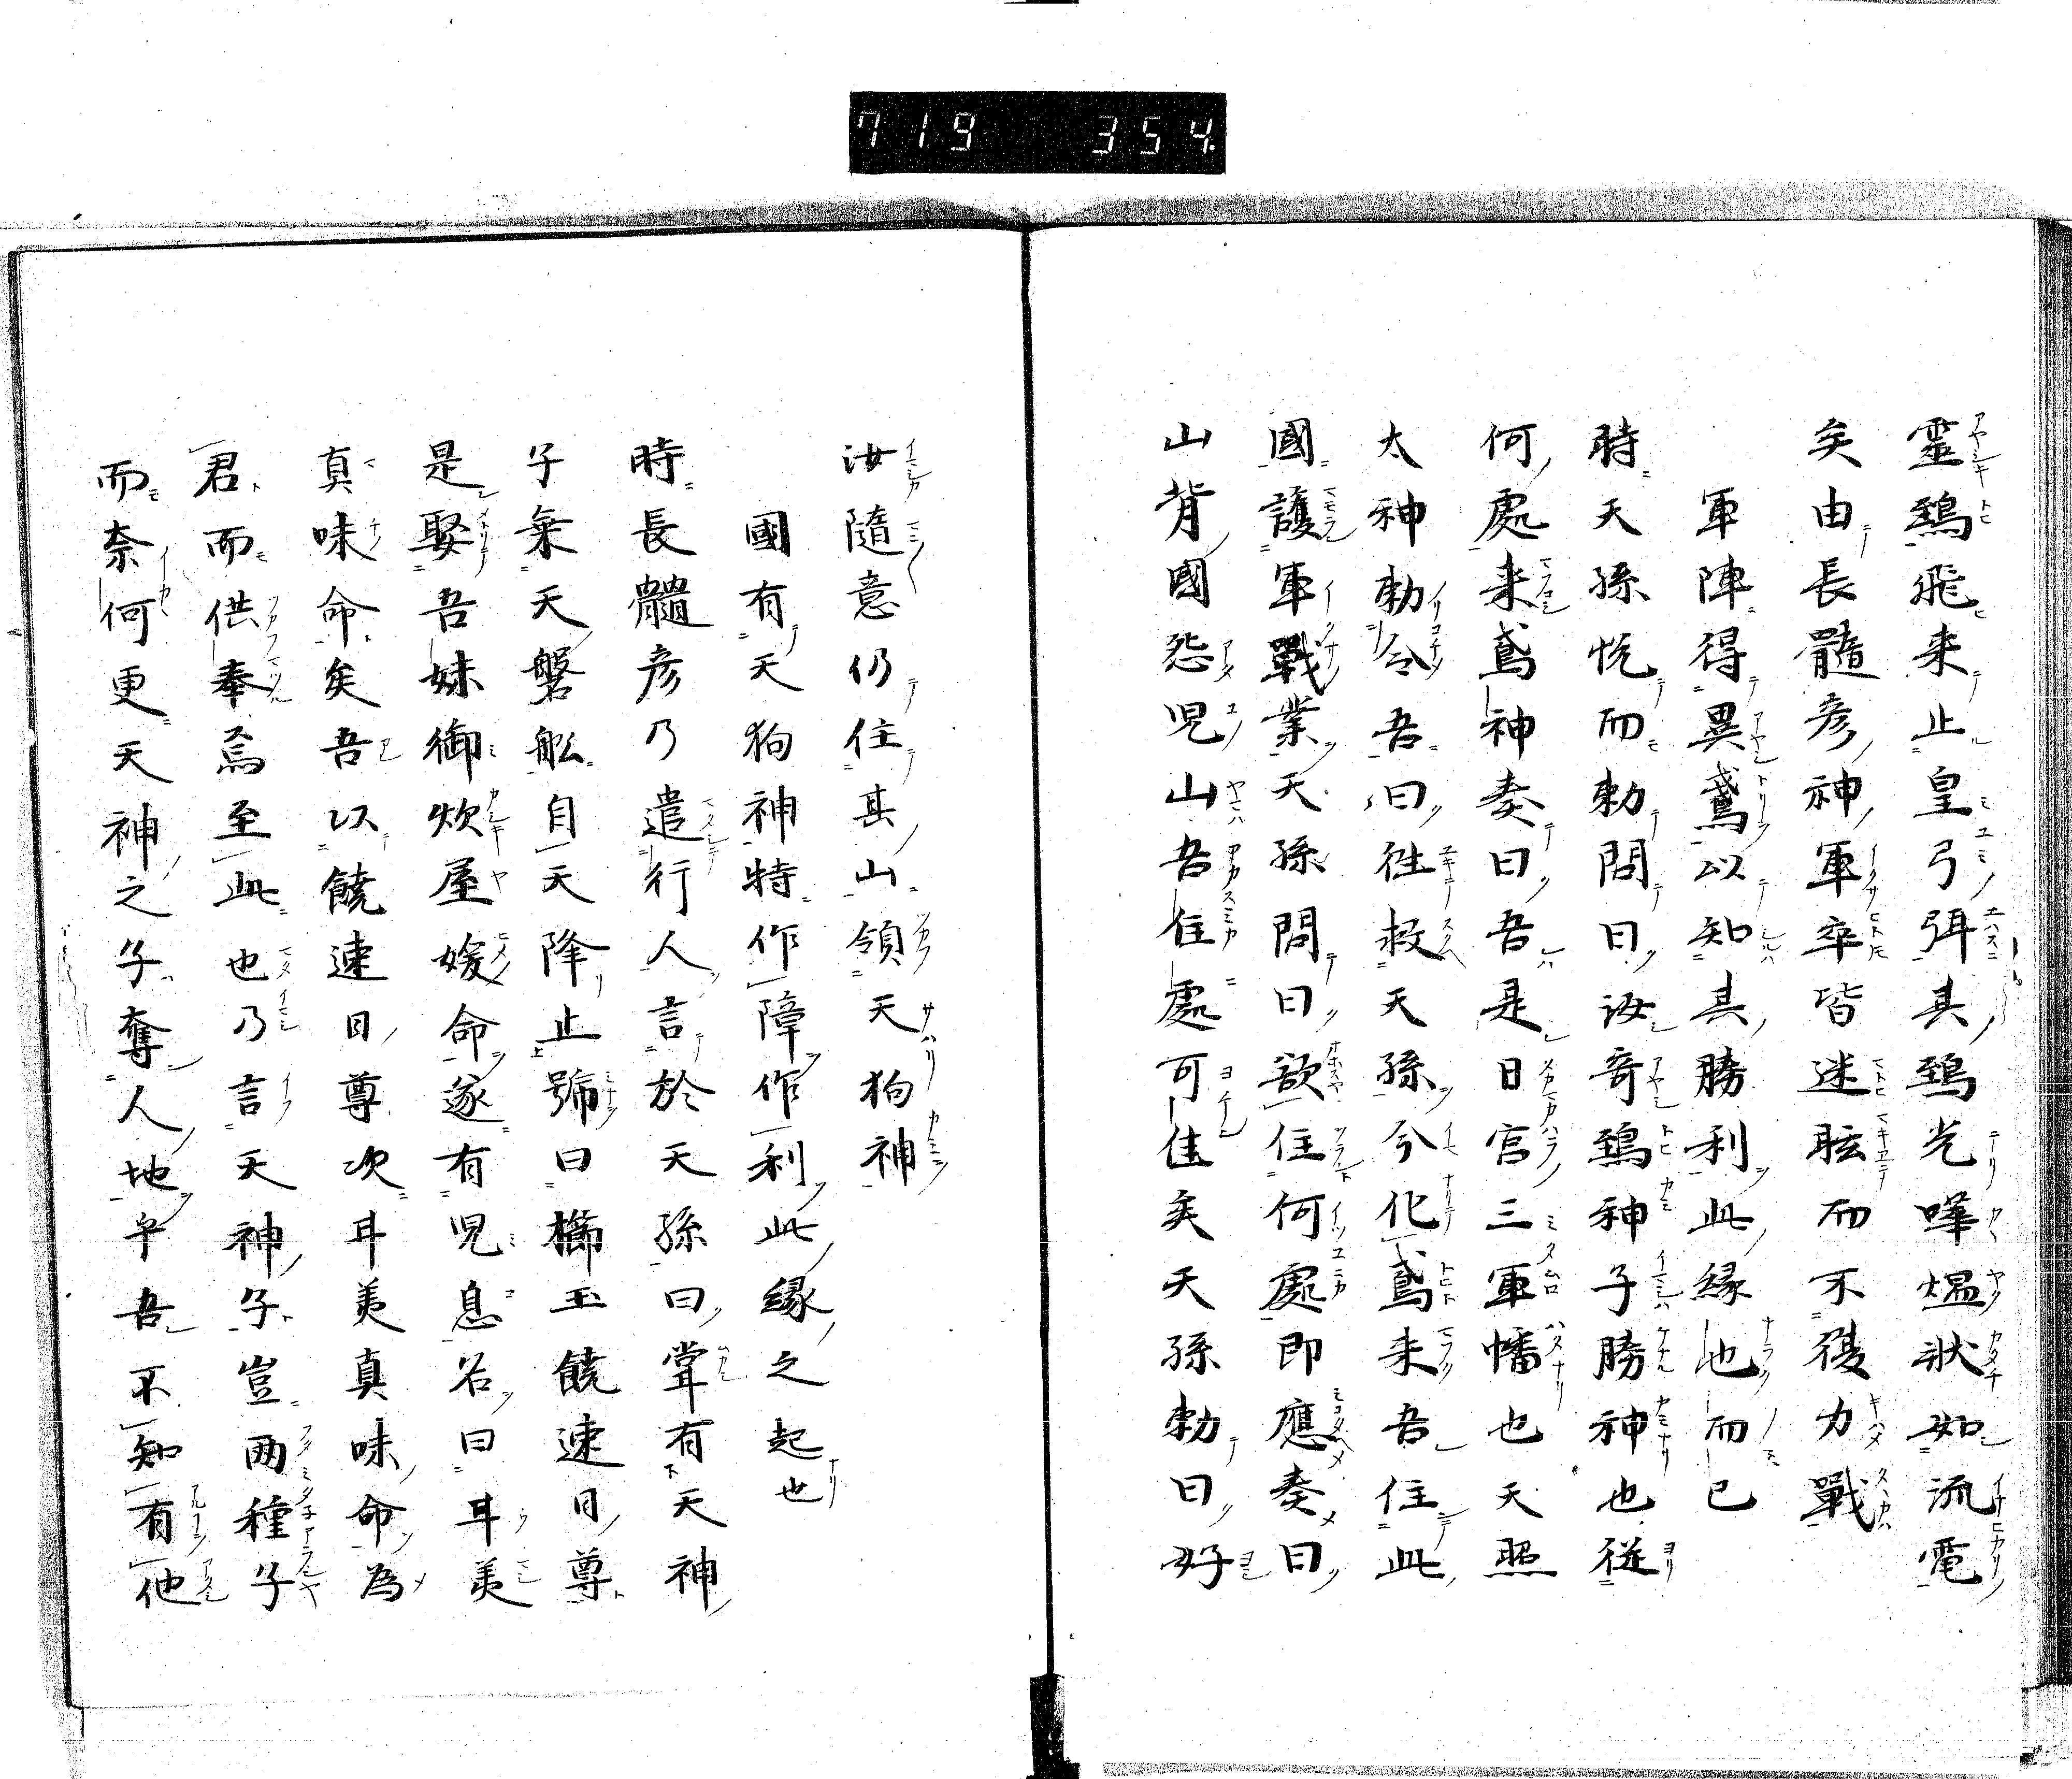 719 354
靈鵄飛来止皇弓弭其鵄光嘩煴狀如流電
矣由長髓彦神軍卒皆迷眩而不復力戰
軍陣得異鳶以知其勝利此縁也而已
時天孫恠而勅問曰汝奇鵄神子勝神也従
何處来鳶神奏曰吾是日宮三軍幡也天照
太神勅令吾曰往救天孫今化鳶来吾住此
國護軍戰業天孫問曰欲住何處即應奏曰
山背國怨児山吾住處可佳矣天孫勅曰好
汝隨意仍住其山領天狗神
國有天狗神特作障作利此縁之起也
時長髓彦乃遣行人言於天孫曰甞有天神
子乗天磐舩自天降止號曰櫛玉饒速日尊
是娶吾妹御炊屋媛命遂有児息名曰耳美
真味命矣吾以饒速日尊次耳美真味命為
君而供奉焉至此也乃言天神子豈两種子
而奈何更天神之子奪人地乎吾不知有他